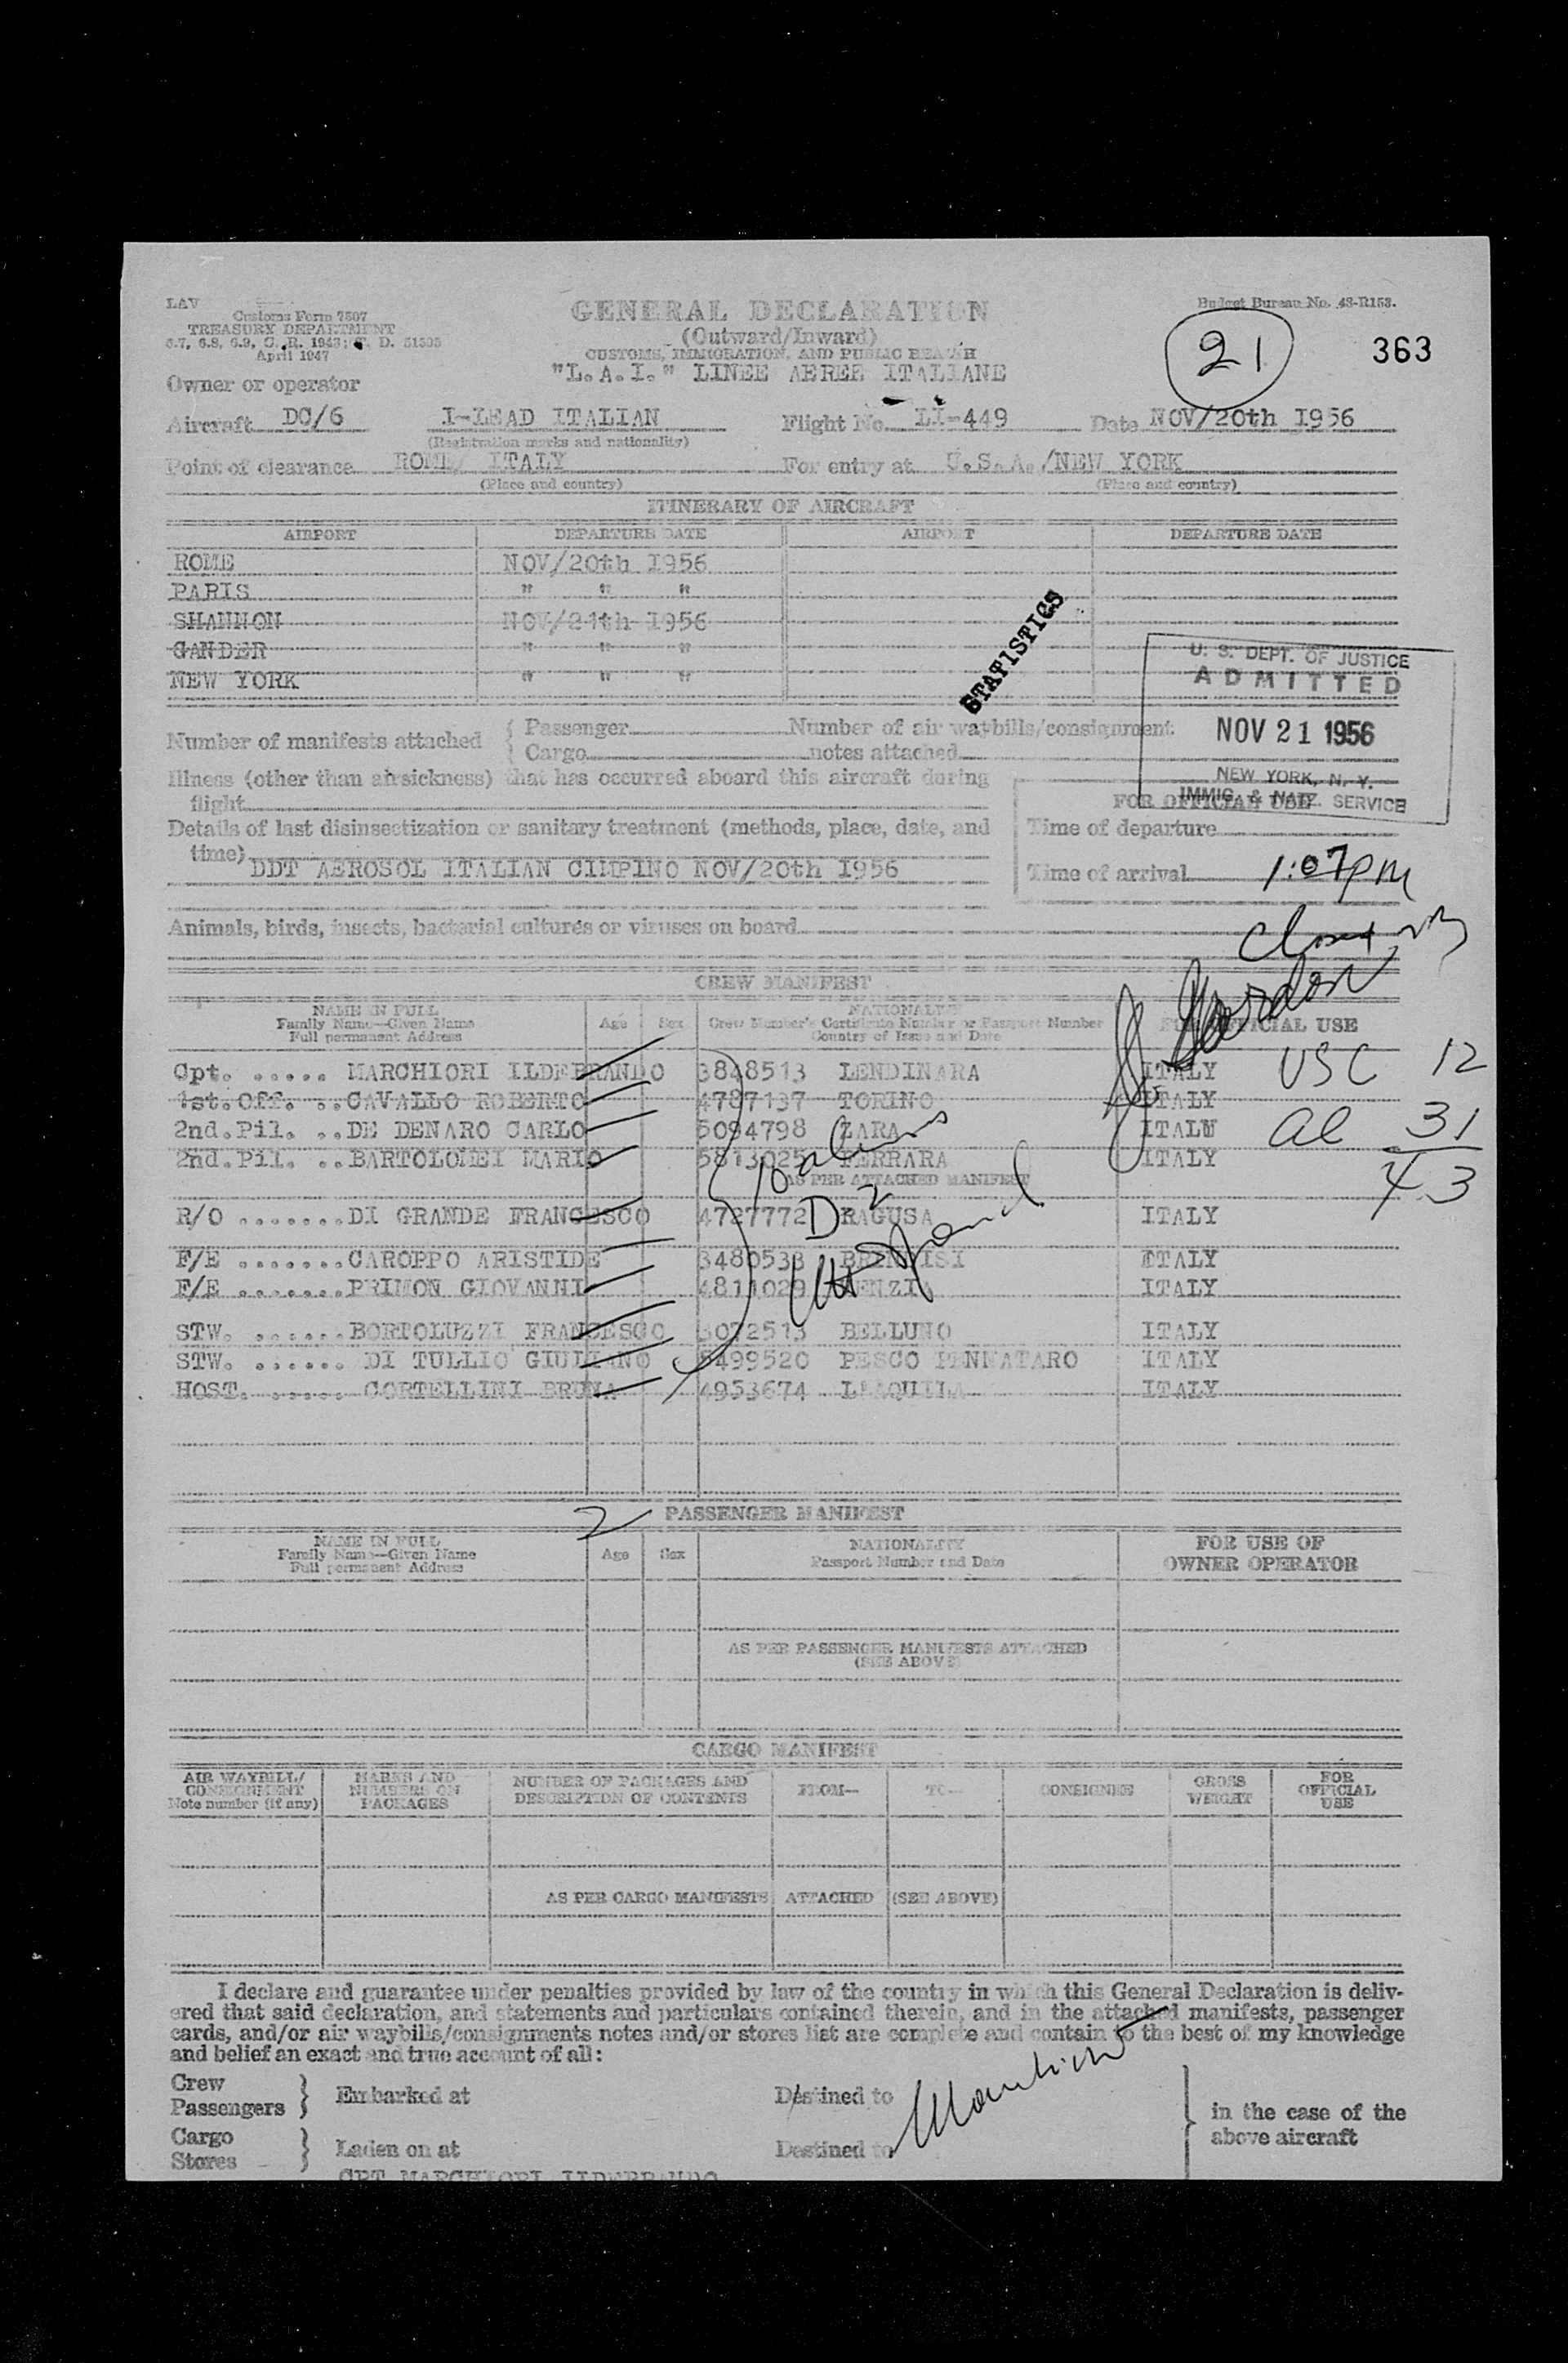 LAV
Customs Form 7507
TREASURY DEPARTMENT
6.7, 6.8, 6.9, C. R. 1943; T. D. 51505
April 1947
GENERAL DECLARATION
(Outward/Inward)
CUSTOMS, IMMIGRATION, AND PUBLIC HEALTH
"L.A.I." LINEE AEREE ITALIANE
Budget Bureau No. 48-R153.
21
363
Owner or operator
Aircraft DC/6 I-LEAD ITALIAN Flight No. LI-449 Date NOV/20th I956
(Registration marks and nationality)
Point of clearance ROME/ ITALY For entry at U.S.A./NEW YORK
(Place and country) (Place and country)
ITINERARY OF AIRCRAFT
AIRPORT DEPARTURE DATE AIRPORT DEPARTURE DATE
ROME NOV/20th I956
PARIS " " "
SHANNON NOV/21th I956
GANDER " " "
NEW YORK " " "
STATISTICS
U. S. DEPT. OF JUSTICE
ADMITTED
NOV 21 1956
NEW YORK, N. Y.
IMMIG. & NATZ. SERVICE
Number of manifests attached { Passenger Number of air waybills/consignment
Cargo notes attached
Illness (other than airsickness) that has occurred aboard this aircraft during
flight
FOR OFFICIAL USE
Details of last disinsectization or sanitary treatment (methods, place, date, and
time) DDT AEROSOL ITALIAN CIMPINO NOV/20th I956
Time of departure
Time of arrival 1:07pm
Animals, birds, insects, bacterial cultures or viruses on board
CREW MANIFEST
NAME IN FULL
Family Name—Given Name
Full permanent Address
Age Sex
NATIONALITY
Crew Member's Certificate Number or Passport Number
Country of Issue and Date
FOR OFFICIAL USE
Gordon
Cpt. ..... MARCHIORI ILDEBRANDO 3848513 LENDINARA ITALY USC 12
1st.Off. ..CAVALLO ROBERTO 4787137 TORINO ITALY
2nd.Pil. ..DE DENARO CARLO 5094798 ZARA ITALY al 31
2nd.Pil. ..BARTOLOMEI MARIO 5813025 FERRARA ITALY 43
AS PER ATTACHED MANIFEST
R/O .......DI GRANDE FRANCESCO 4727772 RAGUSA ITALY
D 2
F/E .......CAROPPO ARISTIDE 3480533 BRINDISI ITALY
F/E .......PRIMON GIOVANNI 4811029 VENZIA ITALY
STW. ......BORTOLUZZI FRANCESCO 3072513 BELLUNO ITALY
STW. ...... DI TULLIO GIULIANO 5499520 PESCO PENNATARO ITALY
HOST. ...... CORTELLINI BRUNA 4953674 L'AQUILA ITALY
2
PASSENGER MANIFEST
NAME IN FULL
Family Name—Given Name
Full permanent Address
Age Sex
NATIONALITY
Passport Number and Date
FOR USE OF
OWNER OPERATOR
AS PER PASSENGER MANIFESTS ATTACHED
(SEE ABOVE)
CARGO MANIFEST
AIR WAYBILL/
CONSIGNMENT
Note number (if any)
MARKS AND
NUMBERS ON
PACKAGES
NUMBER OF PACKAGES AND
DESCRIPTION OF CONTENTS
FROM— TO— CONSIGNEE
GROSS
WEIGHT
FOR
OFFICIAL
USE
AS PER CARGO MANIFESTS ATTACHED (SEE ABOVE)
I declare and guarantee under penalties provided by law of the country in which this General Declaration is deliv-
ered that said declaration, and statements and particulars contained therein, and in the attached manifests, passenger
cards, and/or air waybills/consignments notes and/or stores list are complete and contain to the best of my knowledge
and belief an exact and true account of all:
Crew
Passengers } Embarked at Destined to
Cargo
Stores } Laden on at Destined to
in the case of the
above aircraft
CPT MARCHIORI ILDEBRANDO